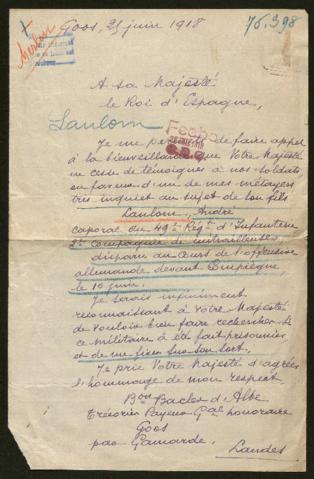 Goos, 25 juin 1918
75.398
A Sa Majesté
le Roi d'Espagne,
Laulom
Je me permets de faire appel
à la bienveillance que Votre Majesté
ne cesse de témoigner à nos soldats
en faveur d'un de mes métayers
très inquiet au sujet de son fils
Laulom, André
caporal du 49e Régt d'Infanterie
2e Compagnie de mitrailleuses
disparu au cours de l'offensive
allemande devant Compiègne,
le 10 juin.
Je serais infiniment
reconnaissant à Votre Majesté
de vouloir bien faire rechercher si
ce militaire a été fait prisonnier
et de me fixer sur son sort.
Je prie Votre Majesté d'agréer
l'hommage de mon respect.
Bon Bacler d'Albe
Trésorier Payeur Gal honoraire
Goos
par Gamarde.
Landes